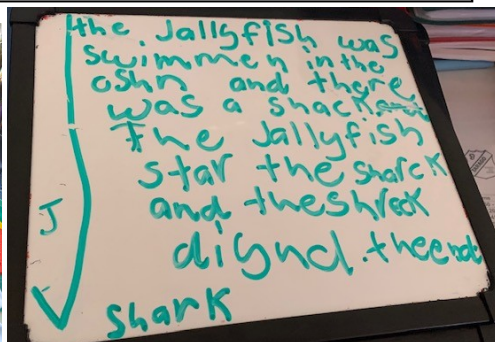 the Jallyfish was
swimmen in the
oshn and there
was a shack.
The Jallyfish
star the sharck
and the shrcck
diynd. the end
J
shark